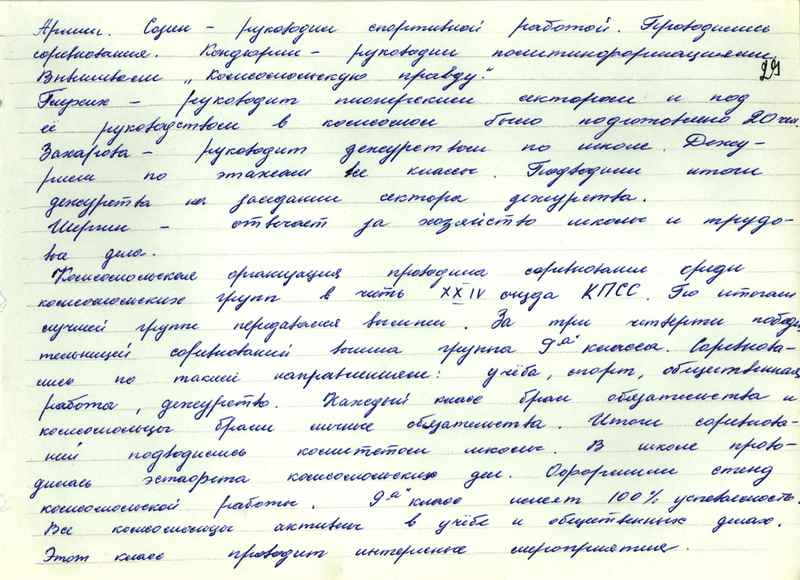 Армии. Созин – руководил спортивной работой. Проводились
соревнования. Кондюрин – руководил политинформациями.
Выписывали „Комсомольскую правду".
29
Глухих – руководит пионерским сектором и под
её руководством в комсомол было подготовлено 20 чел.
Захарова – руководит дежурством по школе. Дежу-
рили по этажам все классы. Подводили итоги
дежурства на заседании сектора дежурства.
Ширкин – отвечает за хозяйство школы и трудо-
вые дела.
Комсомольская организация проводила соревнование среди
комсомольских групп в честь XXIV съезда КПСС. По итогам
лучшей группе передавался вымпел. За три четверти победи-
тельницей соревнований вышла группа 9 „а" класса. Соревнова-
лись по таким направлениям: учёба, спорт, общественная
работа, дежурство. Каждый класс брал обязательства и
комсомольцы брали личные обязательства. Итоги соревнова-
ний подводились комитетом школы. В школе прово-
дилась эстафета комсомольских дел. Оформили стенд
комсомольской работы. 9 „а" класс имеет 100% успеваемость.
Все комсомольцы активны в учёбе и общественных делах.
Этот класс проводит интересные мероприятия.